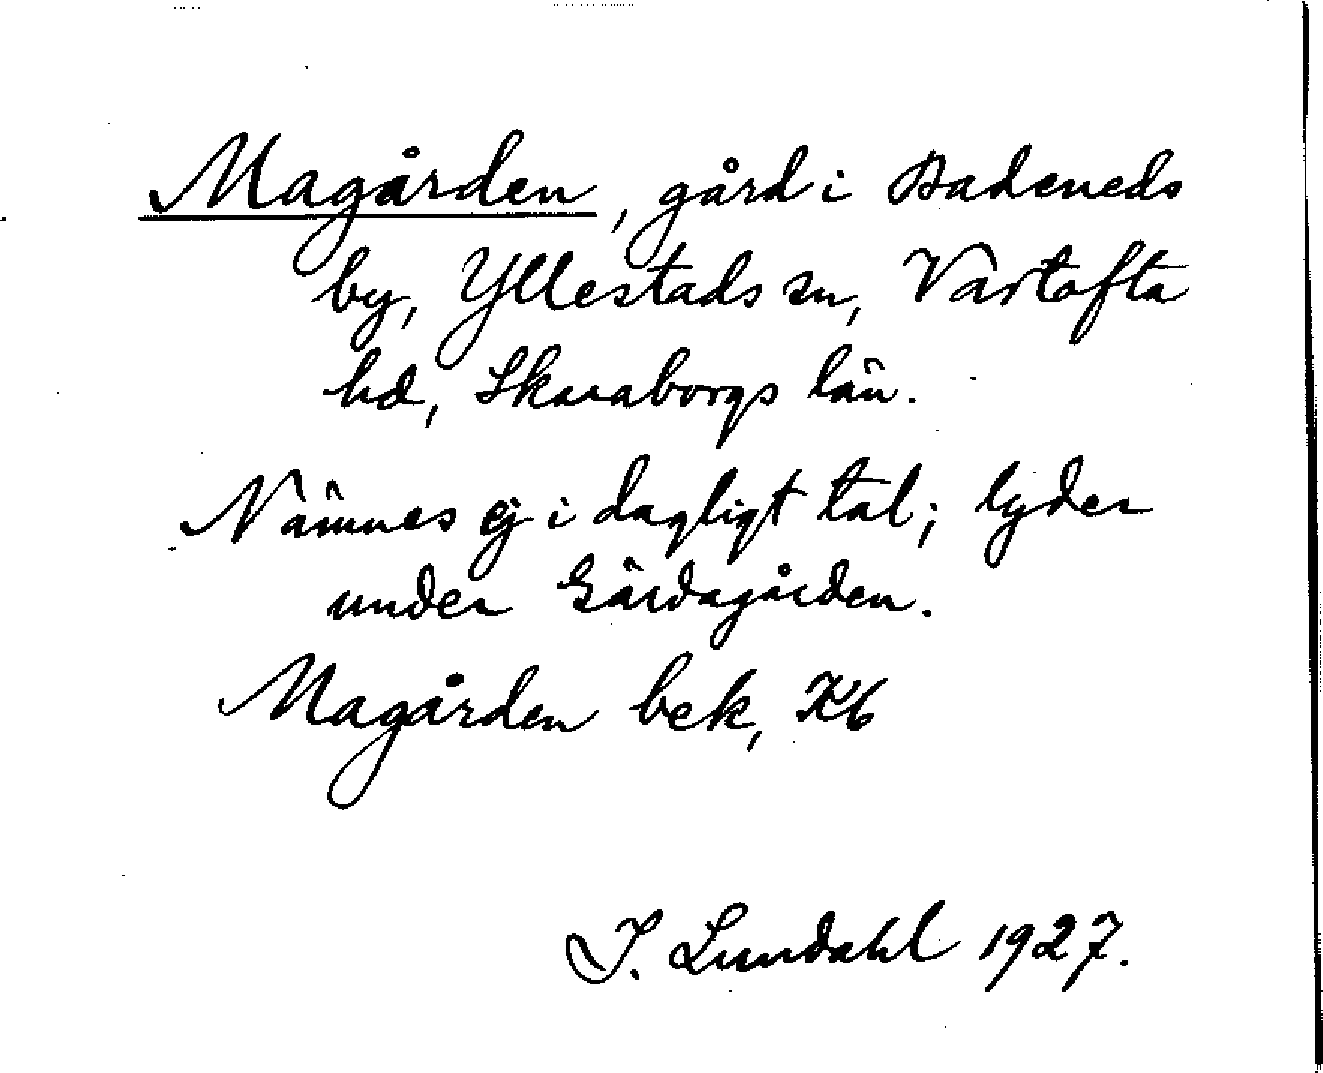 Magården, gård i Badeneds
by, Yllestads sn, Vartofta
hd, Skaraborgs län.
Nämnes ej i dagligt tal; lyder
under Gärdagården.
Magården bek, Kb
I. Lundahl 1927.